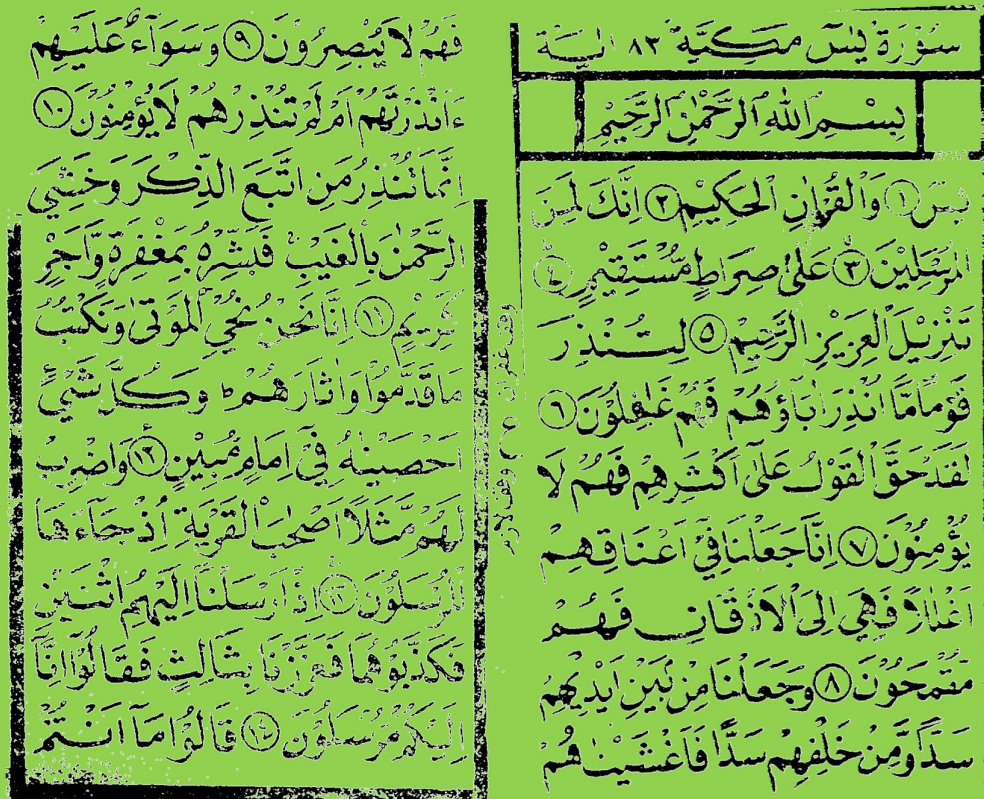 سُوْرَةُ يٰسٓ مَكِّيَّةٌ ٨٣ اٰيَة
بِسْمِ اللّٰهِ الرَّحْمٰنِ الرَّحِيْمِ
يٰسٓ ١ وَالْقُرْاٰنِ الْحَكِيْمِ ٢ اِنَّكَ لَمِنَ
الْمُرْسَلِيْنَ ٣ عَلٰى صِرَاطٍ مُّسْتَقِيْمٍ ٤
تَنْزِيْلَ الْعَزِيْزِ الرَّحِيْمِ ٥ لِتُنْذِرَ
قَوْمًا مَّا اُنْذِرَ اٰبَاؤُهُمْ فَهُمْ غٰفِلُوْنَ ٦
لَقَدْ حَقَّ الْقَوْلُ عَلٰى اَكْثَرِهِمْ فَهُمْ لَا
يُؤْمِنُوْنَ ٧ اِنَّا جَعَلْنَا فِيْ اَعْنَاقِهِمْ
اَغْلٰلًا فَهِيَ اِلَى الْاَذْقَانِ فَهُمْ
مُقْمَحُوْنَ ٨ وَجَعَلْنَا مِنْ بَيْنِ اَيْدِيْهِمْ
سَدًّا وَّمِنْ خَلْفِهِمْ سَدًّا فَاَغْشَيْنٰهُمْ
فَهُمْ لَا يُبْصِرُوْنَ ٩ وَسَوَآءٌ عَلَيْهِمْ
ءَاَنْذَرْتَهُمْ اَمْ لَمْ تُنْذِرْهُمْ لَا يُؤْمِنُوْنَ ١٠
اِنَّمَا تُنْذِرُ مَنِ اتَّبَعَ الذِّكْرَ وَخَشِيَ
الرَّحْمٰنَ بِالْغَيْبِ فَبَشِّرْهُ بِمَغْفِرَةٍ وَّاَجْرٍ
كَرِيْمٍ ١١ اِنَّا نَحْنُ نُحْيِ الْمَوْتٰى وَنَكْتُبُ
مَا قَدَّمُوْا وَاٰثَارَهُمْ ط وَكُلَّ شَيْءٍ
اَحْصَيْنٰهُ فِيْ اِمَامٍ مُّبِيْنٍ ١٢ وَاضْرِبْ
لَهُمْ مَّثَلًا اَصْحٰبَ الْقَرْيَةِ اِذْ جَآءَهَا
الْمُرْسَلُوْنَ ١٣ اِذْ اَرْسَلْنَا اِلَيْهِمُ اثْنَيْنِ
فَكَذَّبُوْهُمَا فَعَزَّزْنَا بِثَالِثٍ فَقَالُوْا اِنَّا
اِلَيْكُمْ مُّرْسَلُوْنَ ١٤ قَالُوْا مَآ اَنْتُمْ
وقف غفران
ع
وقف لازم